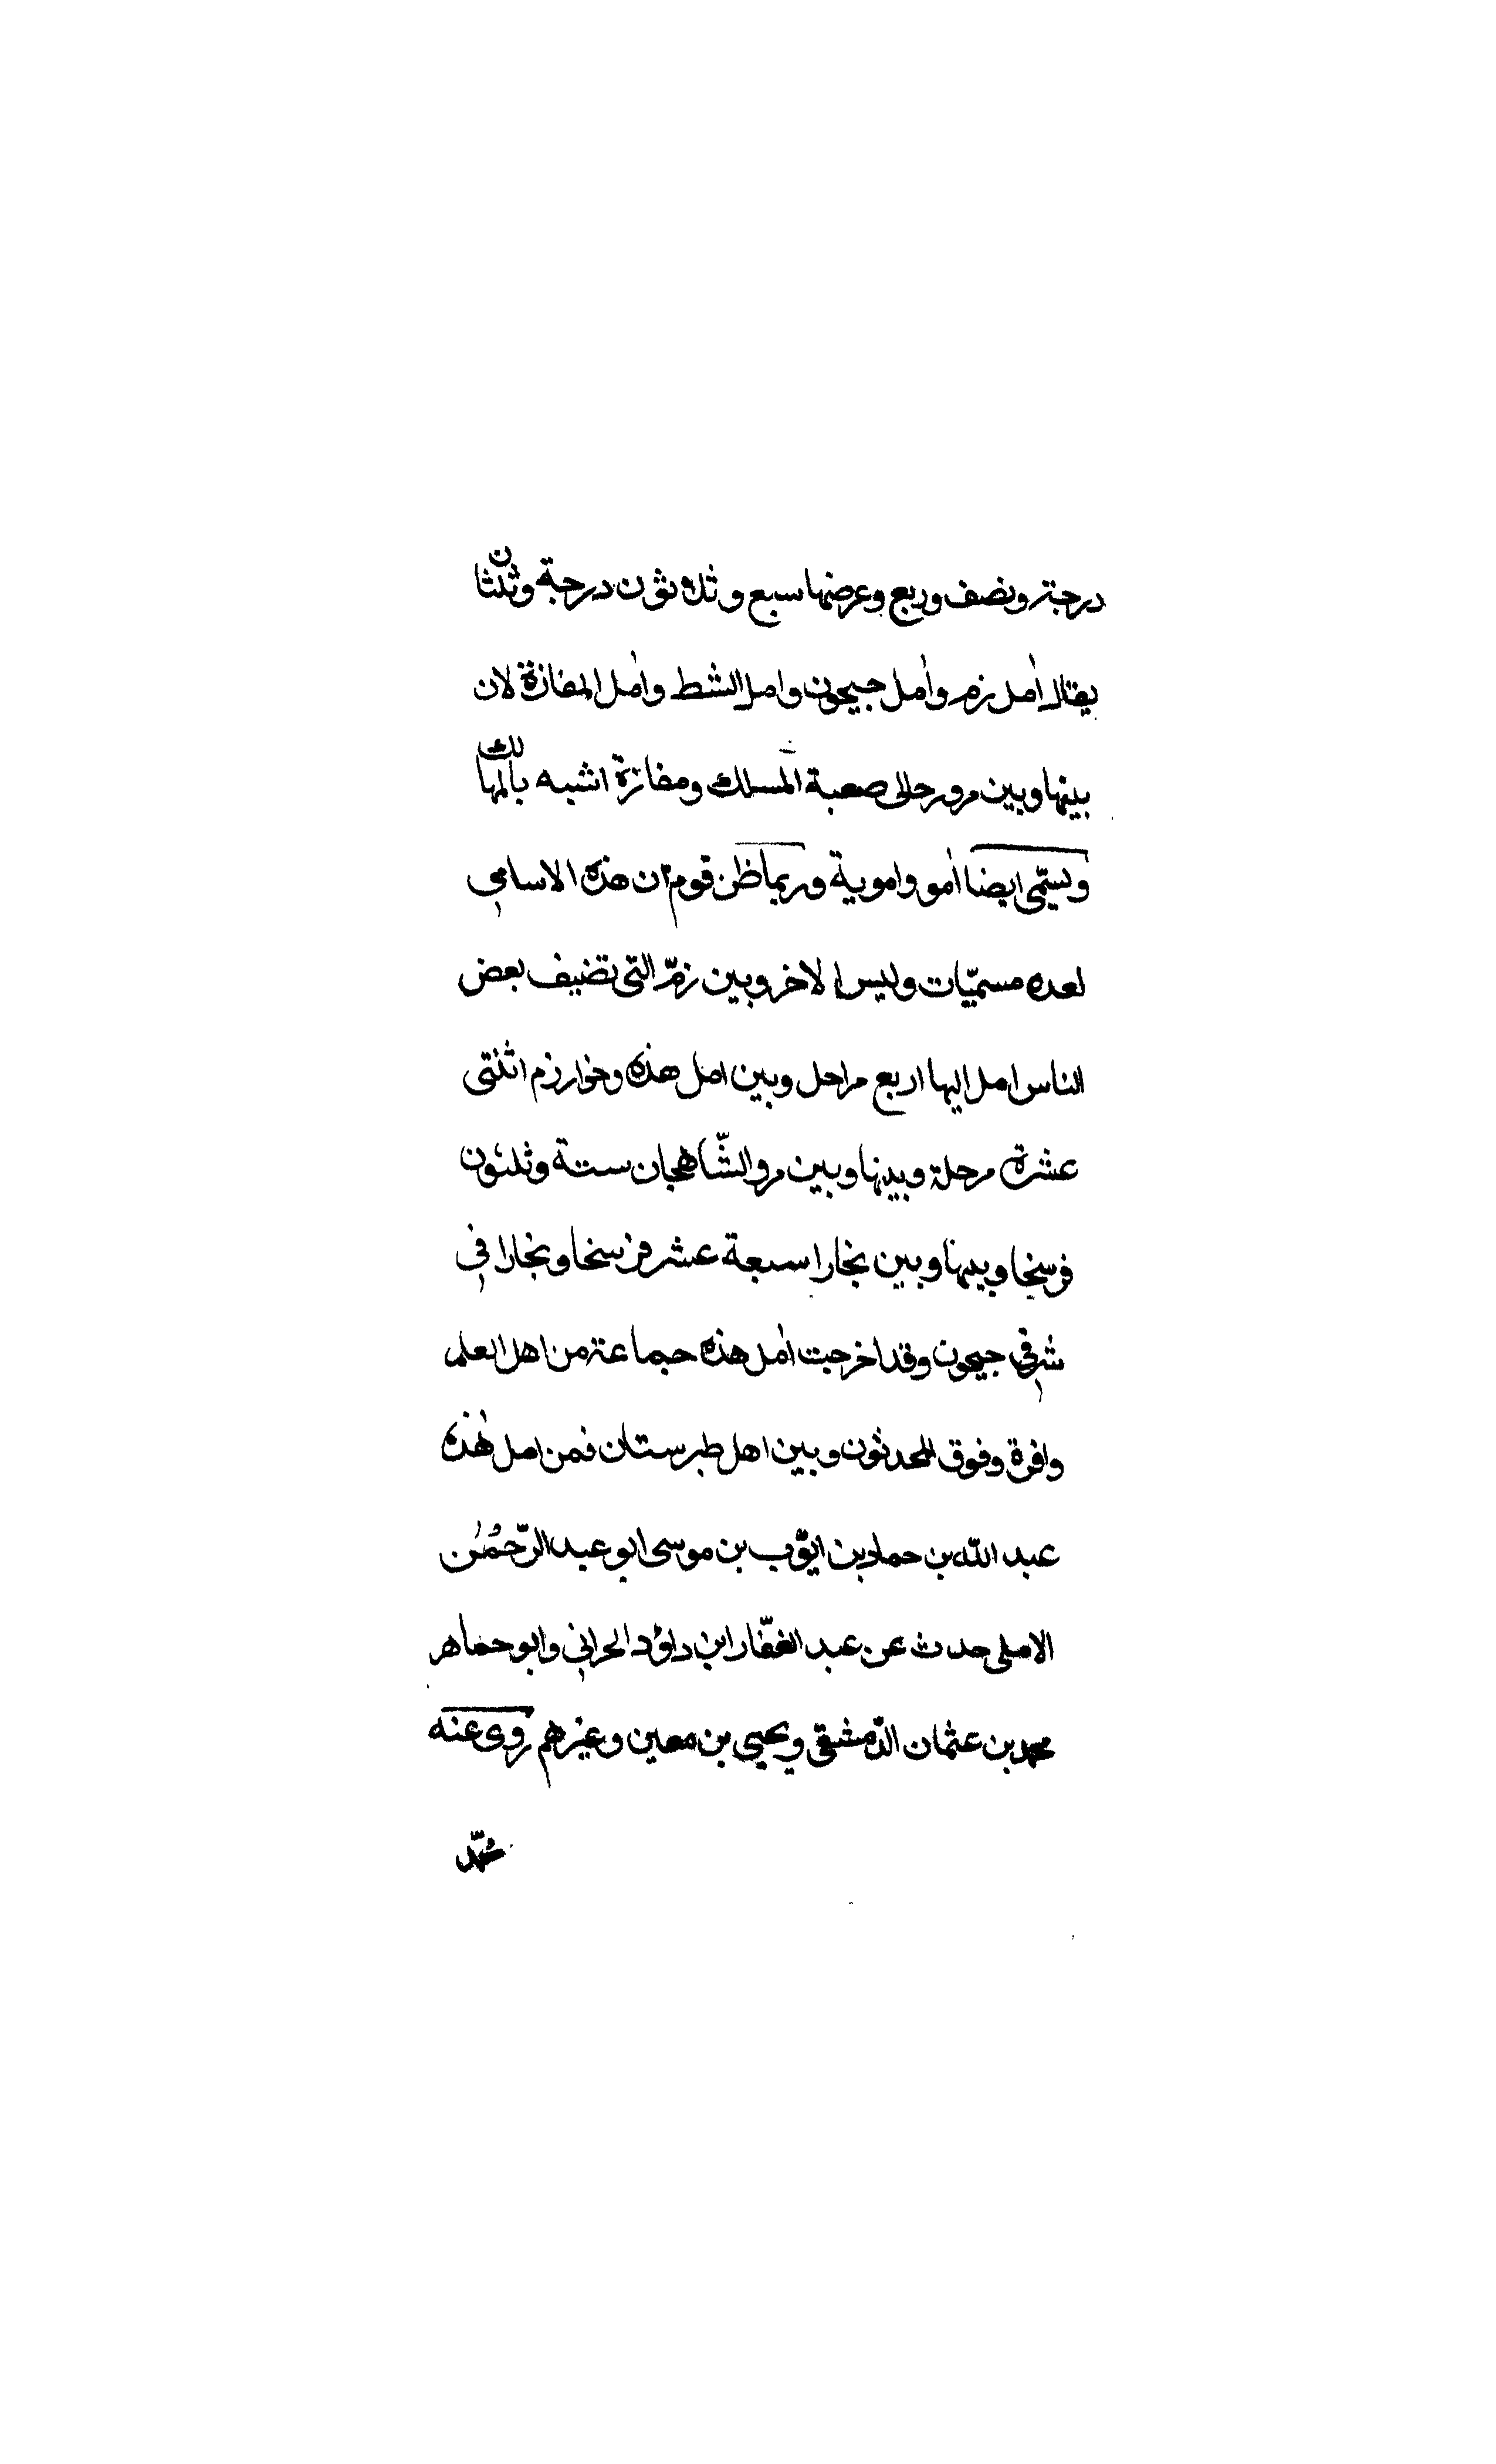 درجة ونصف وربع وعرضها سبع وثلاثون درجة وثلثان
يقال امل زم وامل جيحون وامل الشط وامل المفازة لان
بينها وبين مرو رحالى صعبة المسلك ومفازة اشبه بالمهالك
ويسمّى ايضا امو واموية وربما ظن قوم ان هذه الاسامي
لعده مسمّيات وليس الاخر وبين زمّ التى تضيف بعض
الناس امل اليها اربع مراحل وبين امل هذه وخوارزم اثنتى
عشرة مرحلة وبينها وبين مرو الشّاهجان ستة وثلثون
فرسخا وبينها وبين بخارا سبعة عشر فرسخا وبخارا في
شرقي جيحون وقد اخرجت امل هذه جماعة من اهل العلم
وافرة وفوق المحدثون وبين اهل طبرستان فمن امل هذه
عبد الله بن حماد بن ايّوب بن موسى ابو عبد الرّحمٰن
الاملى حدث عن عبد الغفّار ابن داؤد الحراني وابو حماهر
محمد بن عثمان الدّمشقى ويحيى بن معين وغيرهم روى عنه
محمّد